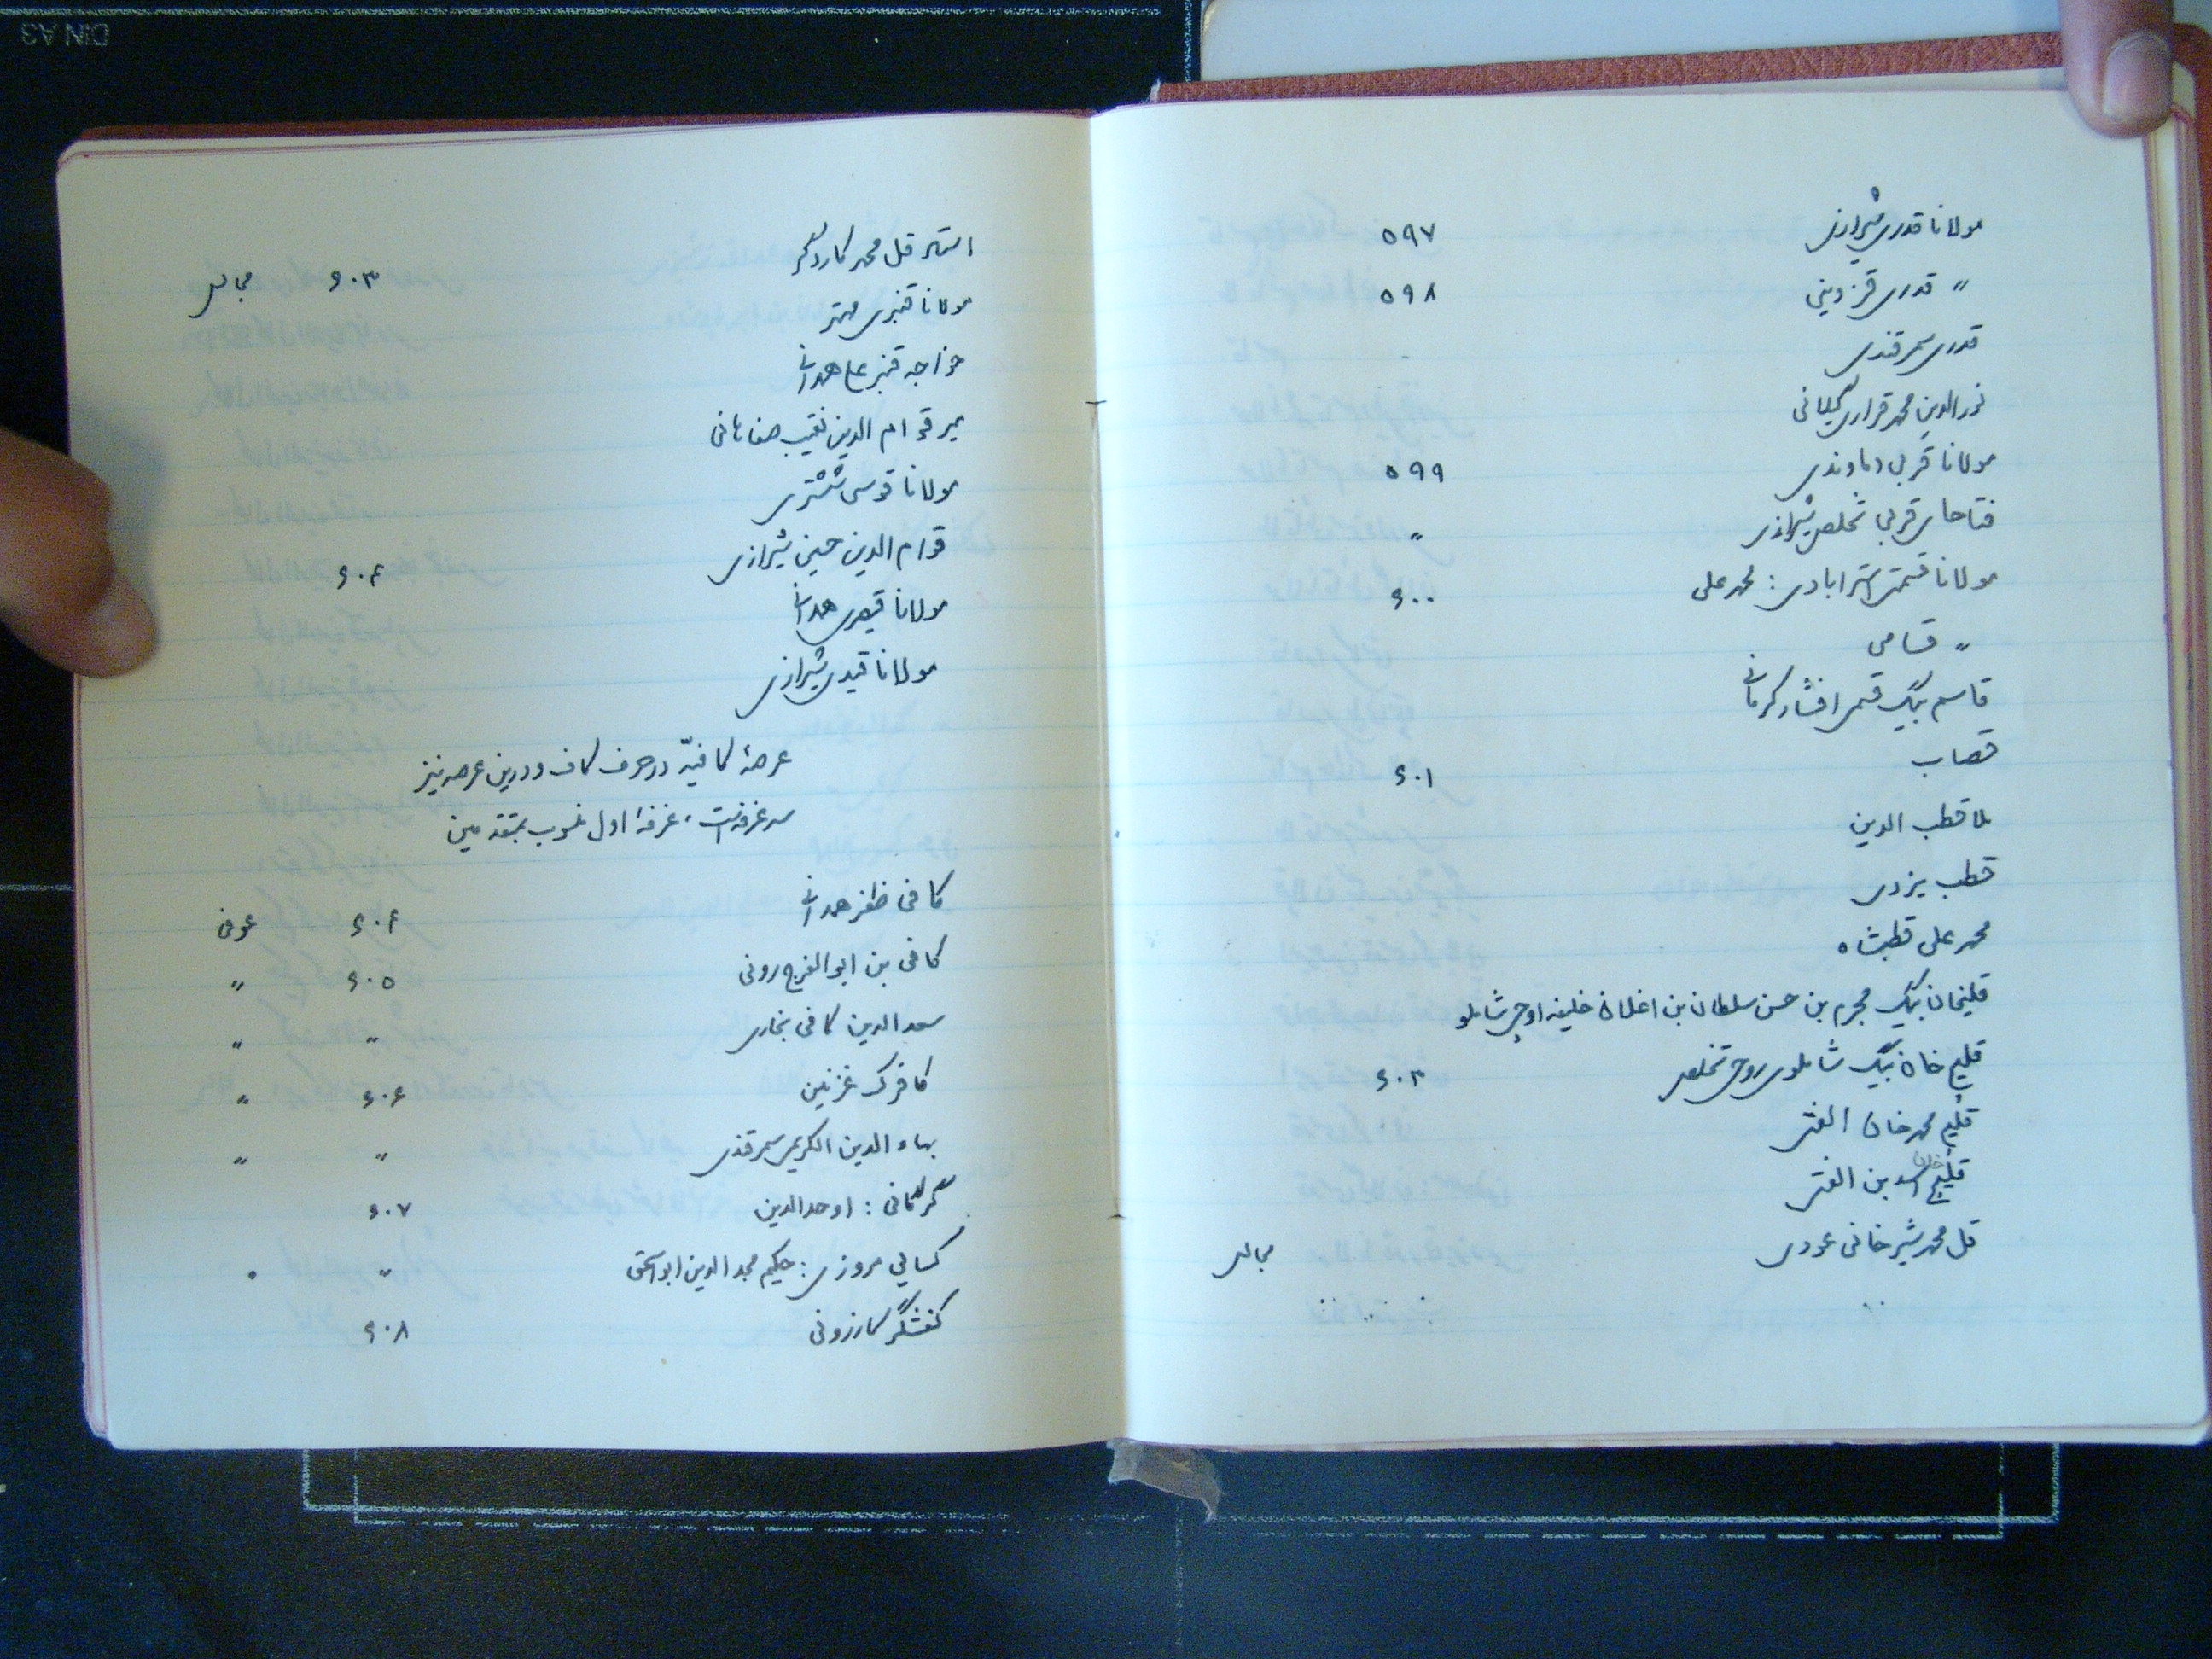 مولانا قدری شیرازی ۵۹۷
〃 قدری قزوینی ۵۹۸
قدری سمرقندی
نورالدین محمد قراری گیلانی
مولانا قربی دماوندی ۵۹۹
قربی تخلص شیرازی 〃
مولانا قسمتی استرابادی : محمد علی ۶۰۰
〃 قسامی
قاسم بیگ قسمی افشار کرمانی
قصاب ۶۰۱
ملا قطب الدین
قطب یزدی
محمد علی قطبشاه
قلیخان بیگ محرم بن حسن سلطان بن اغلان خلیفه اوجی شاملو
قلیج خان بیگ شاملوی روحی تخلص ۶۰۲
قلیج محمد خان الفتی
قلیج خان اسد بن الفتی
قل محمد شیرخانی عودی مجالس
استاد قل محمد کاردگر ۶۰۳ مجالس
مولانا قنبری مهتر
خواجه قنبر علی همدانی
میر قوام الدین نقیب صفاهانی
مولانا قوسی ششتری
قوام الدین حسین شیرازی ۶۰۴
مولانا قیصری همدانی
مولانا قیدی شیرازی
عرصهٔ کافیّه در حرف کاف و درین عرصه نیز
سه غرفه است ، غرفهٔ اول منسوب بمتقدمین
کافی ظفر همدانی ۶۰۴ عوفی
کافی بن ابوالفرج رونی ۶۰۵ 〃
سعدالدین کافی بخاری 〃 〃
کافرک غزنین ۶۰۶ 〃
بهاء الدین الکریمی سمرقندی 〃 〃
کرمانی : اوحدالدین ۶۰۷
کسایی مروزی : حکیم مجدالدین ابواسحق 〃
کفشگر کازرونی ۶۰۸
DIN A3